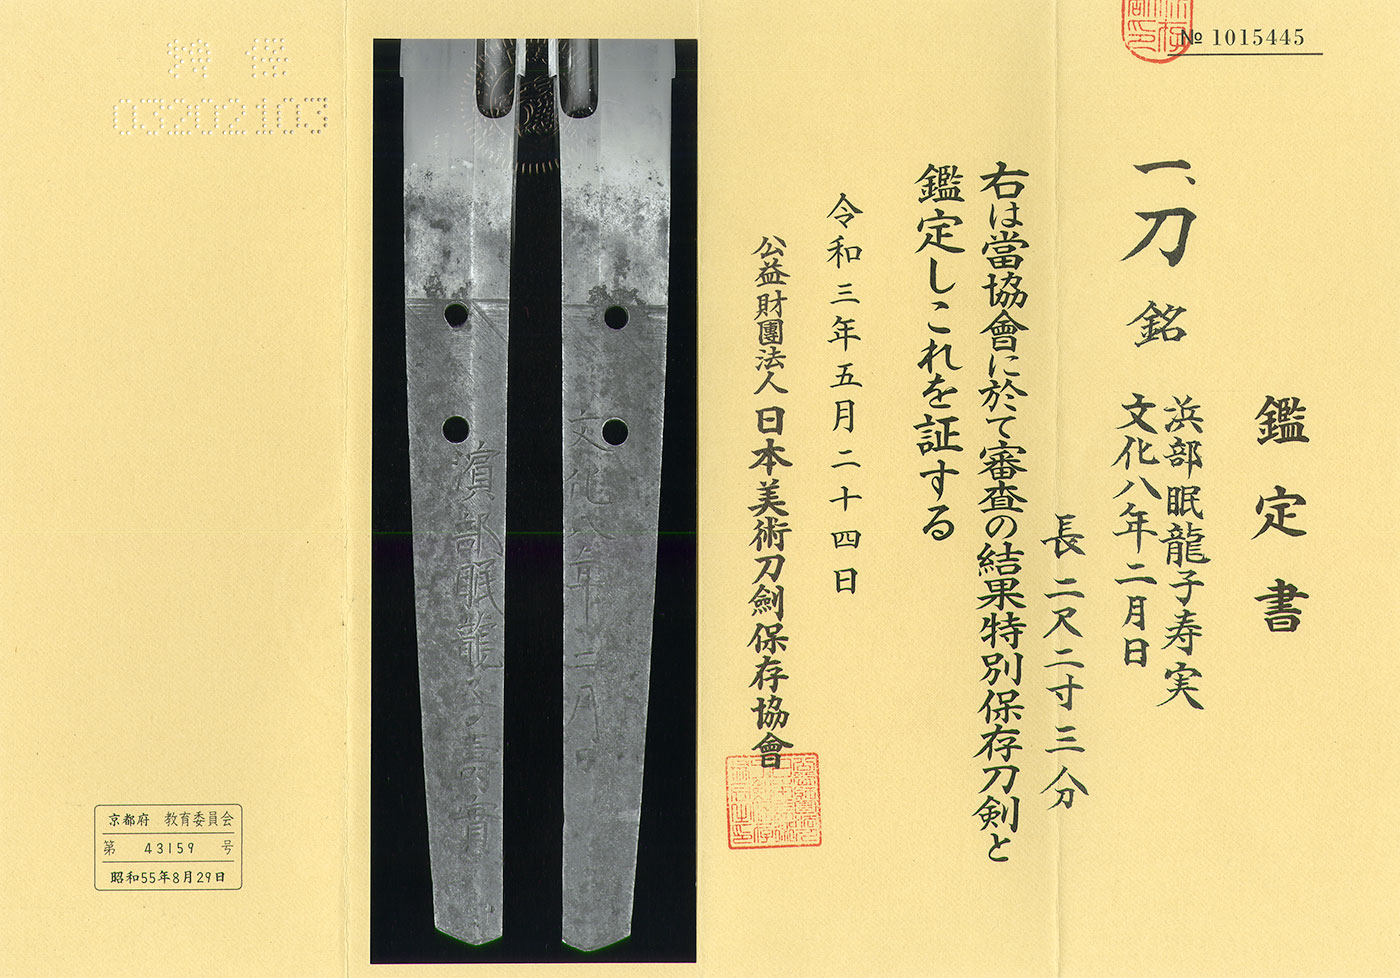 № 1015445
鑑定書
一、刀 銘
浜部眠龍子寿実
文化八年二月日
長二尺二寸三分
右は當協會に於て審査の結果特別保存刀剣と
鑑定しこれを証する
令和三年五月二十四日
公益財團法人 日本美術刀劍保存協會
文化八年二月日
濵部眠龍子壽實
03202103
京都府 教育委員会
第 43159 号
昭和55年8月29日